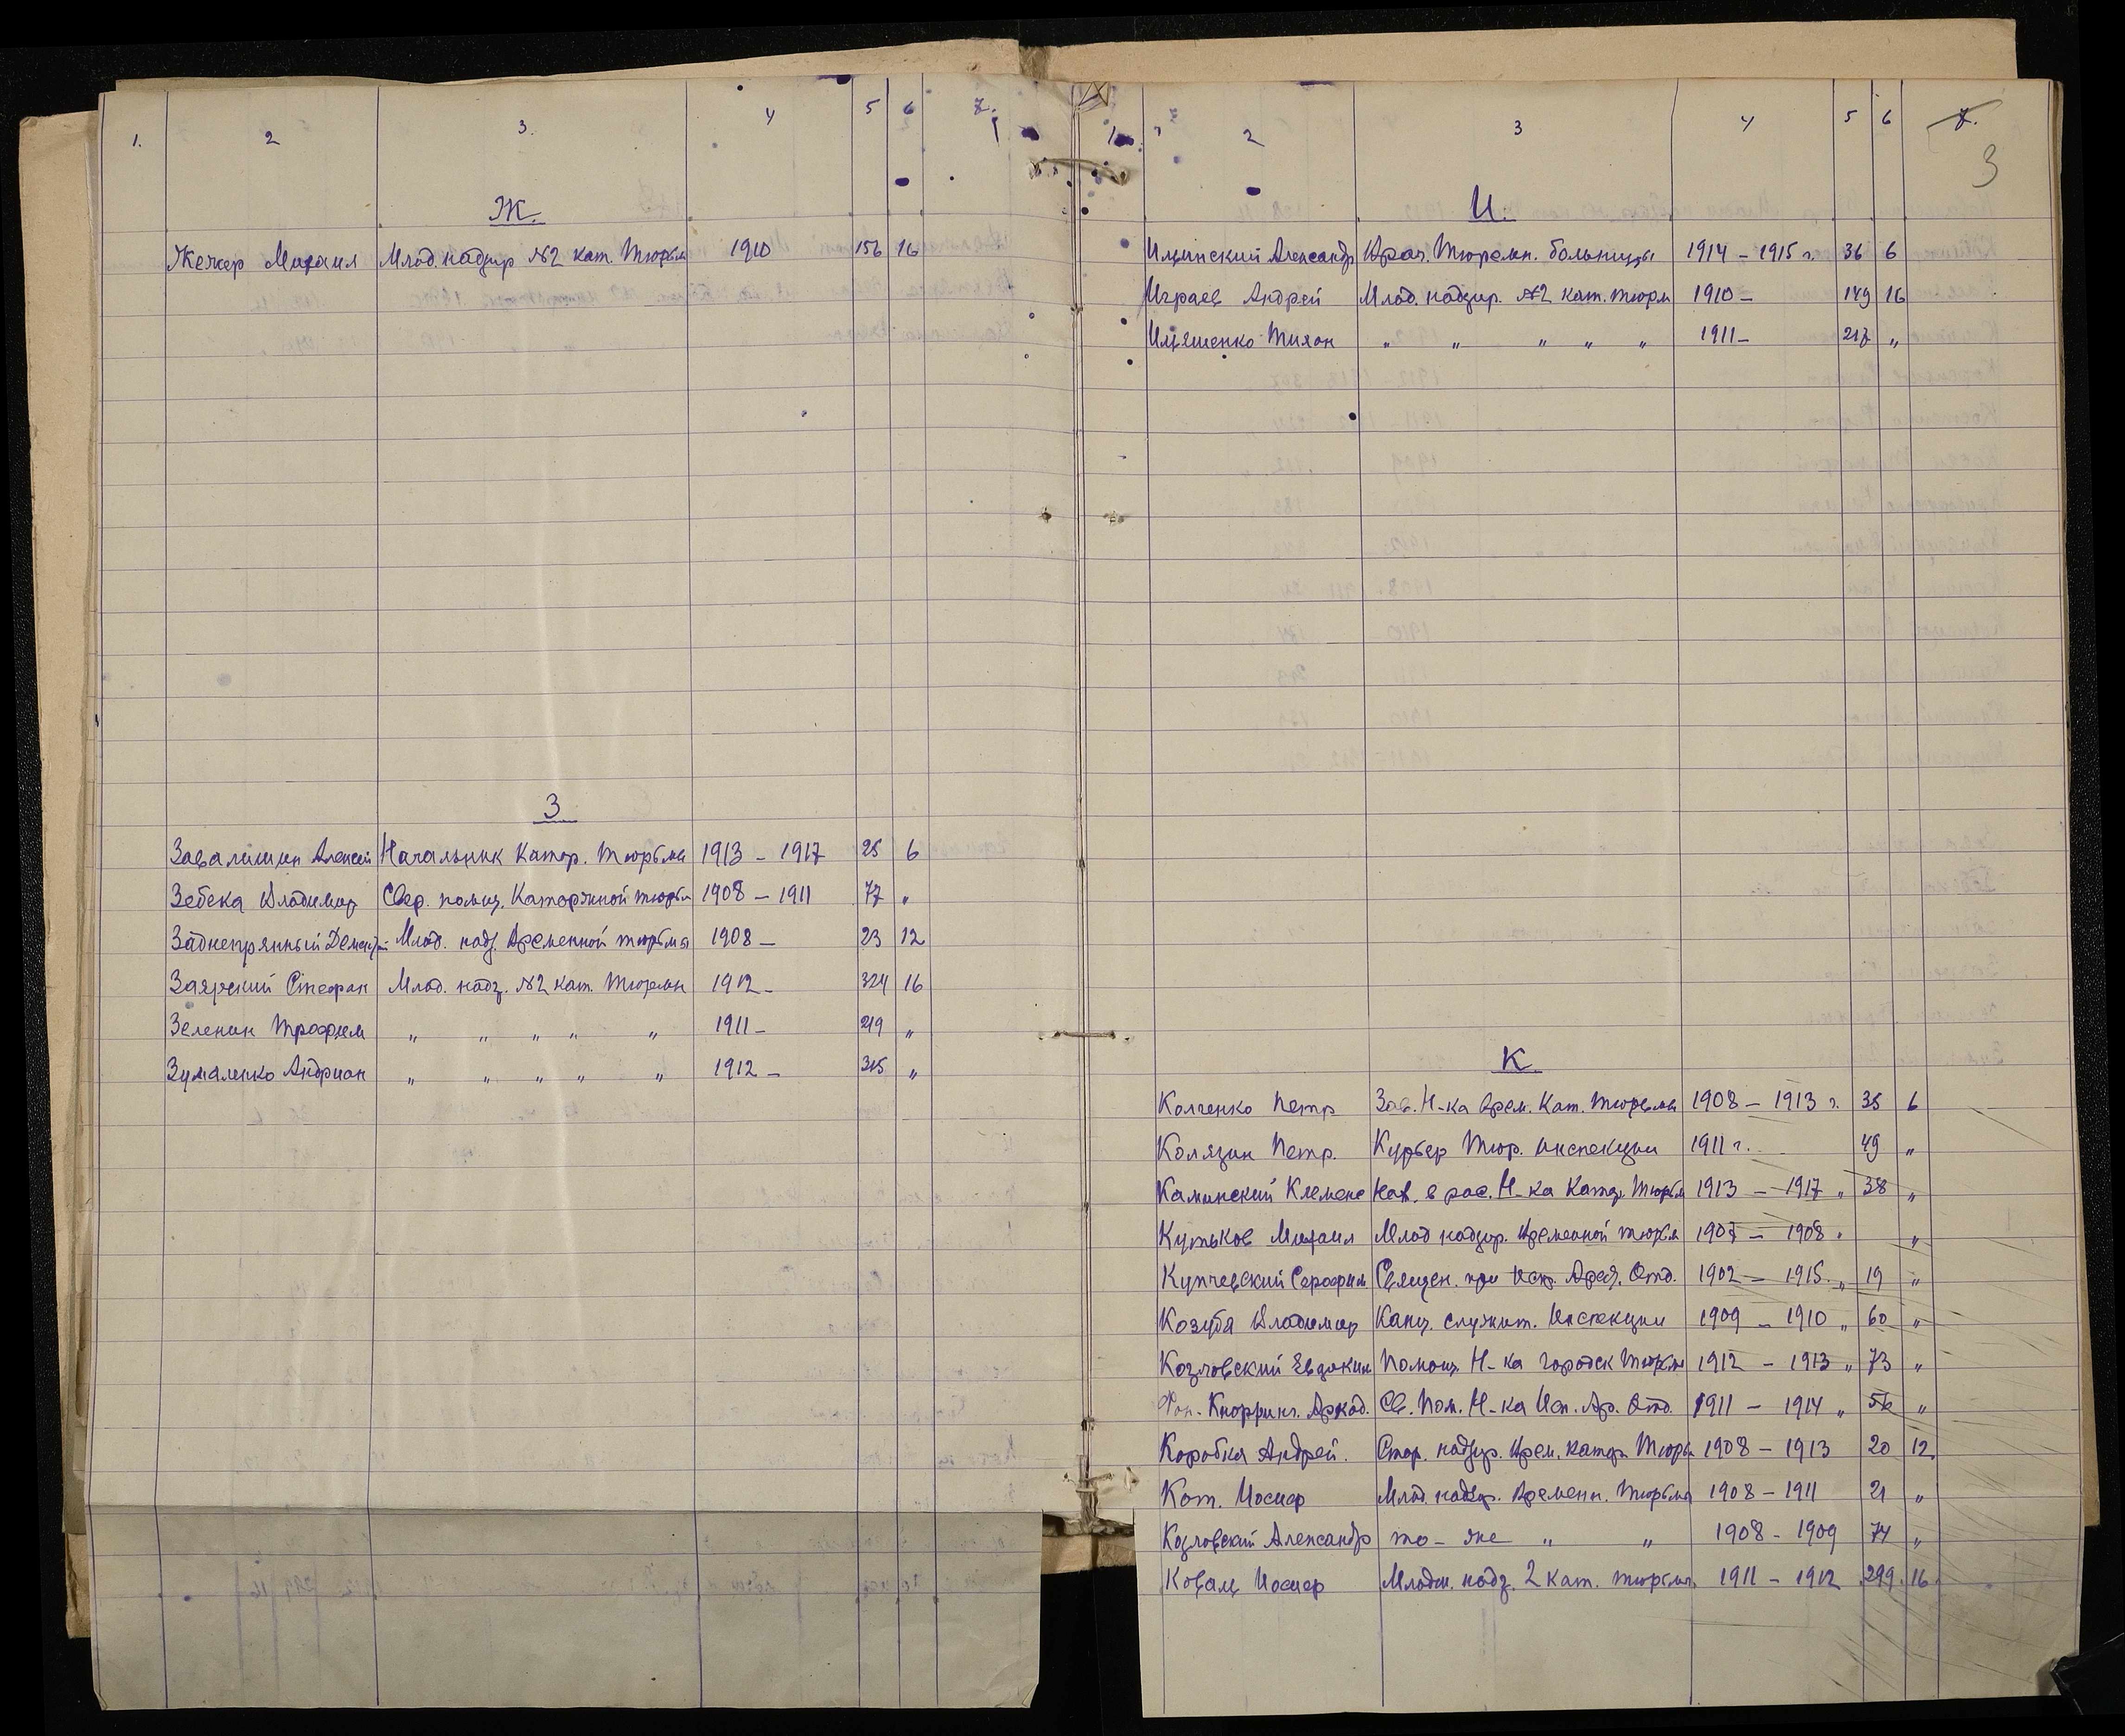 1. 2 3. 4 5 6 7.
Ж.
Жечер Михаил Млад. надзир №2 кат. Тюрьм 1910 156 16
З
Завалишин Алексей Начальник Катор. Тюрьмы 1913 – 1917 25 6
Зебека Владимир Свер. помощ. Каторжной тюрьм 1908 – 1911 77 „
Заднепрянный Млад. надз. Временной тюрьмы 1908 – 23 12
Заярский Стефан Млад. надз. №2 кат. Тюрьмы 1912 – 324 16
Зеленин Трофим „ „ „ „ „ 1911 – 219 „
Зумаленко Андриан „ „ „ „ „ 1912 – 315 „
1. 2 3 4 5 6 7.
3
И.
Ильинский Александр Врач. Тюремн. больницы 1914 – 1915 г. 36 6
Играев Андрей Млад. надзир. №2 кат. тюрм 1910 – 149 16
Ильяшенко Тихон „ „ „ „ „ 1911 – 217 „
К.
Колченко Петр Зав. Н-ка Врем. Кат. Тюрьмы 1908 – 1913 г. 35 6
Колязин Петр. Курьер Тюр. инспекции 1911 г. 49 „
Каминский Клеменс в рас. Н-ка Катор. Тюрьм 1913 – 1917 „ 38 „
Кутьков Михаил Млад надзир. Временной тюрьм 1907 – 1908 „ „
Купчевский Серафим Священ. при Исп. Арест. Отд. 1902 – 1915 „ 19 „
Козуба Владимир Канц. служит. Инспекции 1909 – 1910 „ 60 „
Козловский Евдоким Помощ. Н-ка городск Тюрьм 1912 – 1913 „ 73 „
Фон-Кнорринг. Аркад. Св. Пом. Н-ка Исп. Ар. Отд. 1911 – 1914 „ 56 „
Коробка Андрей. Стар. надзир. Врем. катор. Тюрь 1908 – 1913 20 12
Кот. Иосиф Млад. надзир. Временн. Тюрьмы 1908 – 1911 21 „
Козловский Александр то – же „ „ 1908 – 1909 74 „
Коваль Иосиф Младш. надз. 2 кат. тюрьмы. 1911 – 1912 299 16